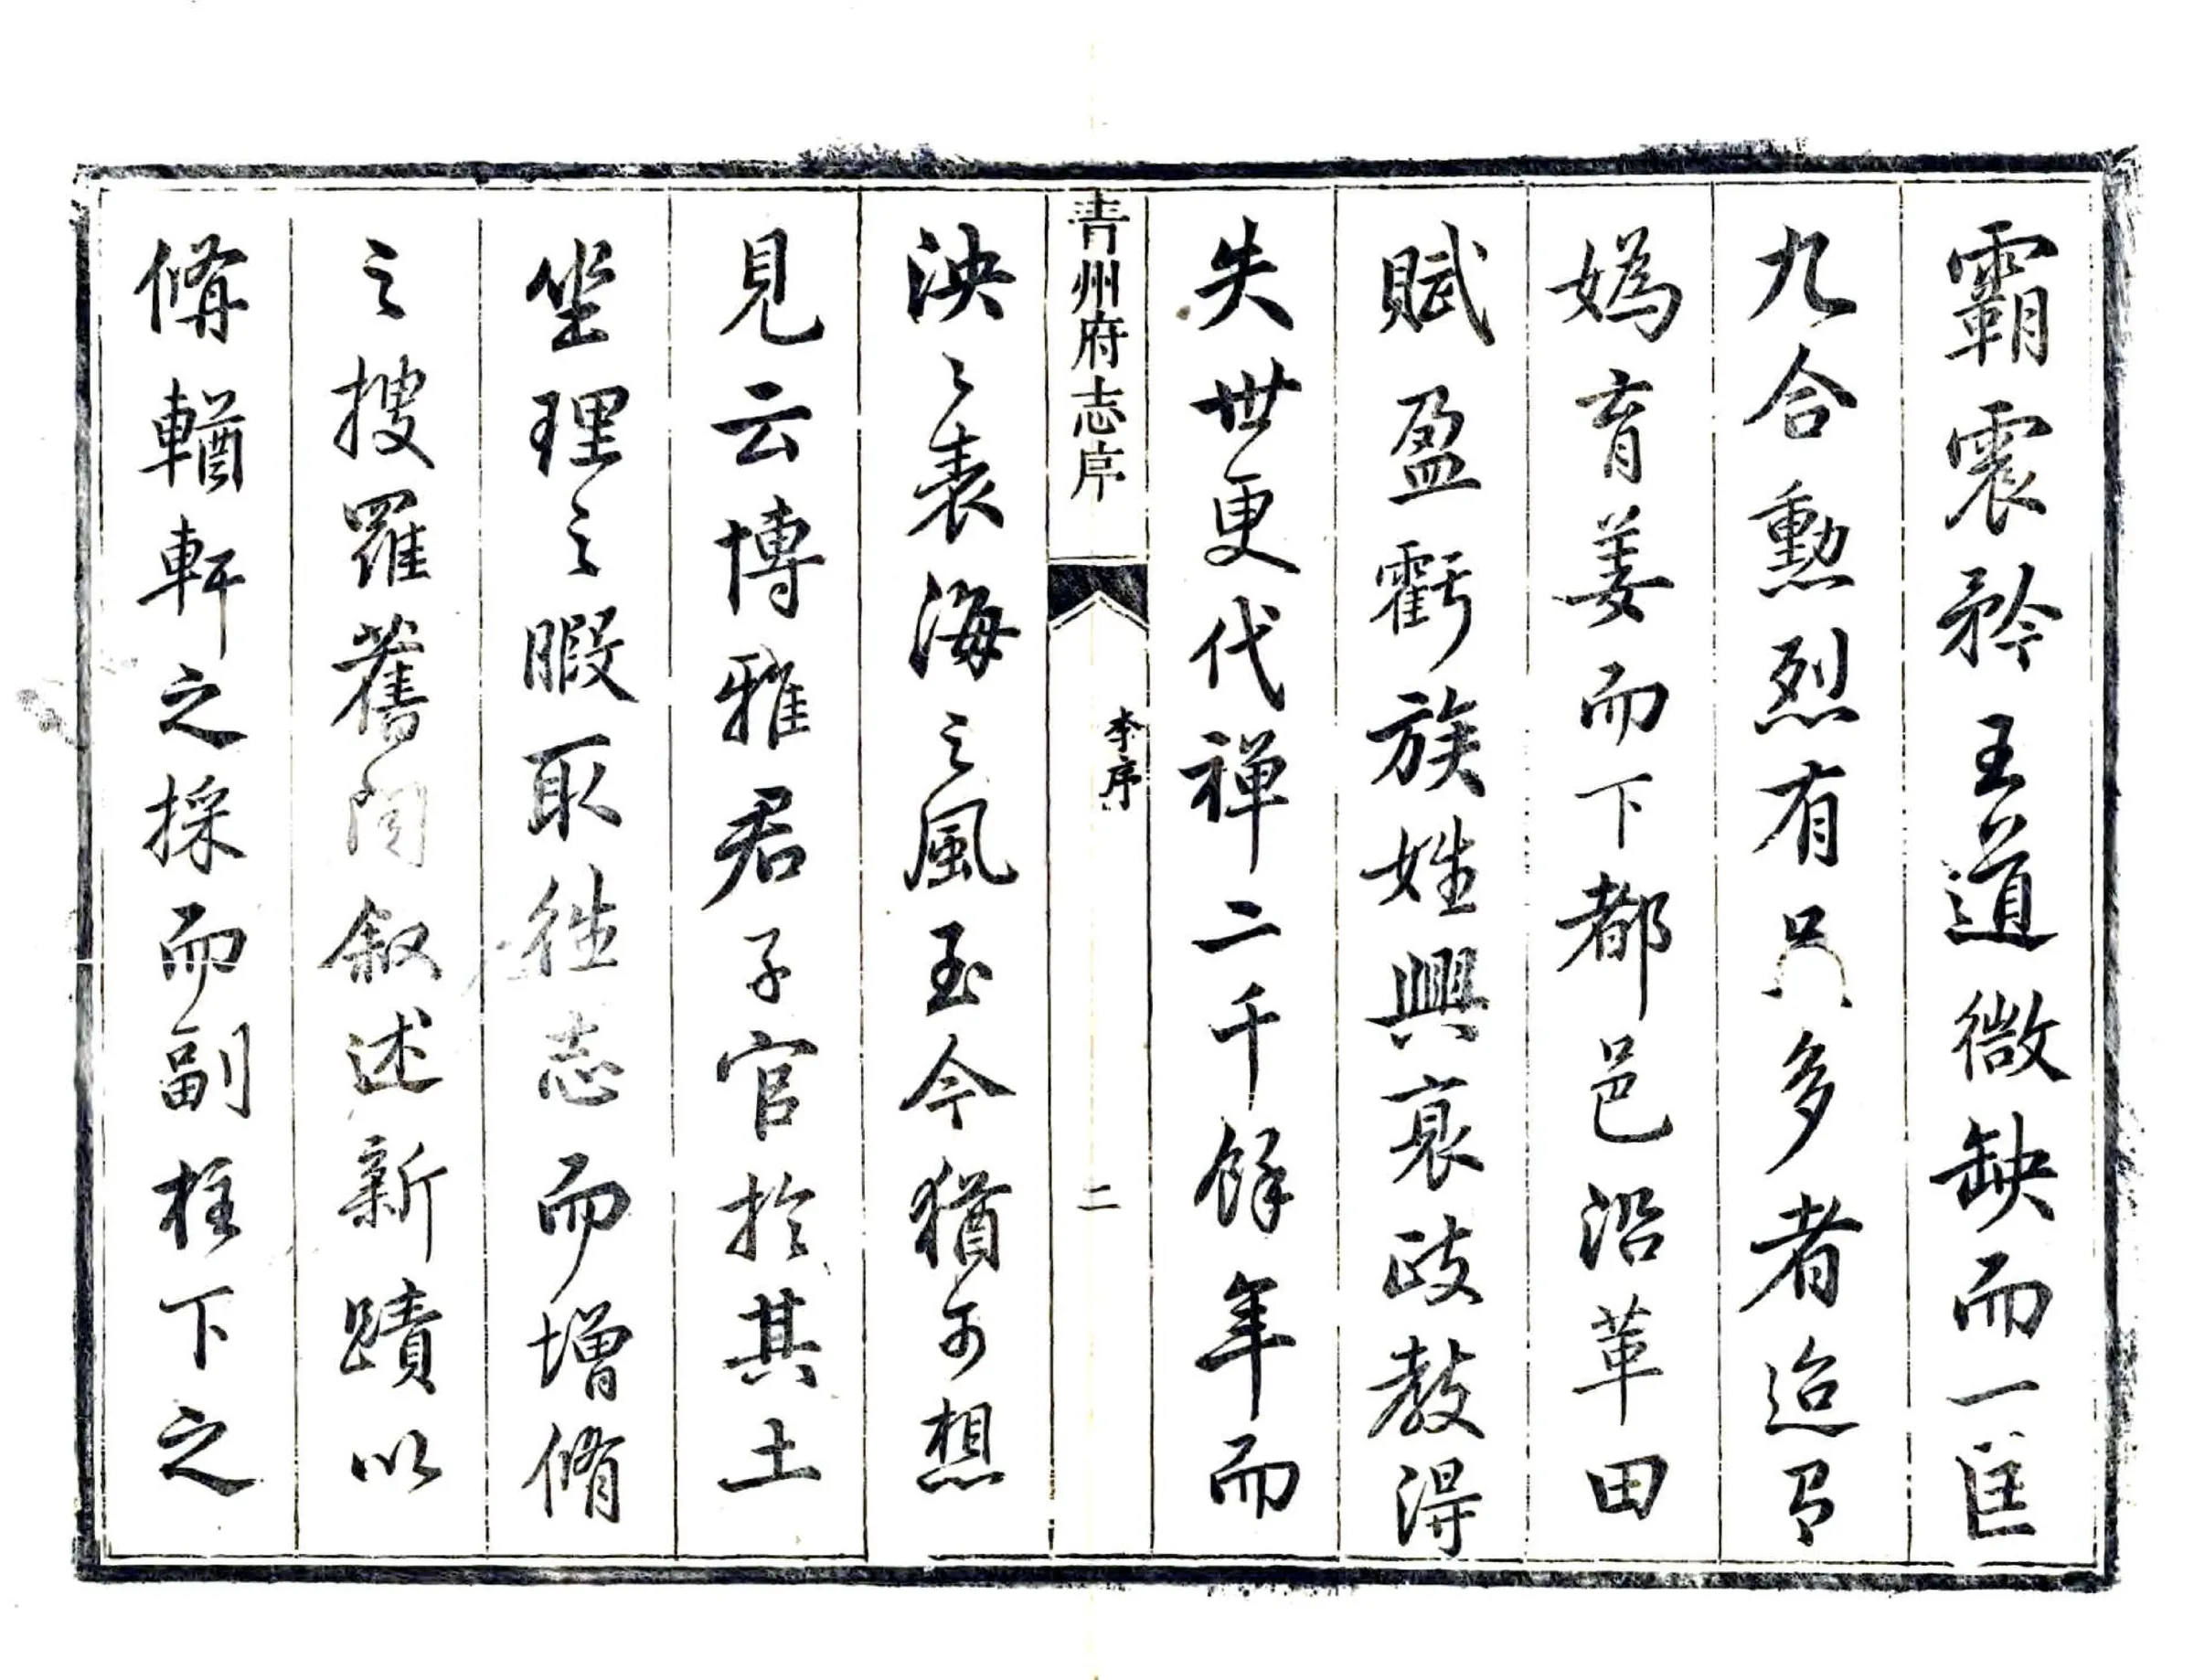 霸震矜王道微缺而一匡
九合勲烈有足多者迨乎
媯育姜而下都邑沿革田
賦盈虧族姓興衰政教得
失世更代禅二千餘年而
青州府志序
李序
二
泱〻表海之風至今猶可想
見云博雅君子官於其土
坐理之暇取徃志而增脩
之搜羅舊聞叙述新蹟以
脩輶軒之採而副柱下之